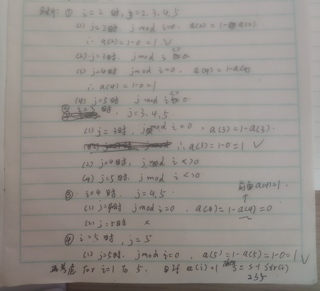 ① i=2时, j=2,3,4,5
(1) j=2时 j mod i=0, a(2)=1-a(2)
∴ a(2)=1-0=1 √
(2) j=3时, j mod i<>0
(3) j=4时 j mod i=0, a(4)=1-a(4)
∴ a(4)=1-0=1
(4) j=5时 j mod i<>0
② i=3时, j=3,4,5
(1) j=3时 j mod i=0, a(3)=1-a(3)
∴ a(3)=1-0=1 √
(3) j=4时, j mod i<>0
(4) j=5时, j mod i<>0
③ i=4时, j=4,5
a(4)=1
(1) j=4时 j mod i=0, a(4)=1-a(4)=0
(2) j=5时 ×
④ i=5时, j=5
(1) j=5时, j mod i=0, a(5)=1-a(5)=1-0=1 √
for i=1 to 5, if a(i)=1 S=S+Str(i)
235